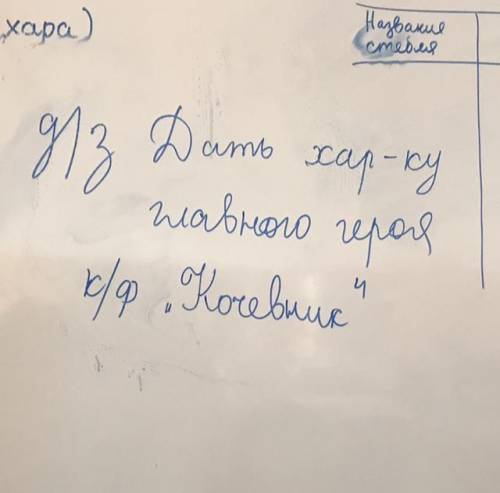 хара)
Название
стебля
д/з Дать хар-ку
главного героя
к/ф „Кочевник"